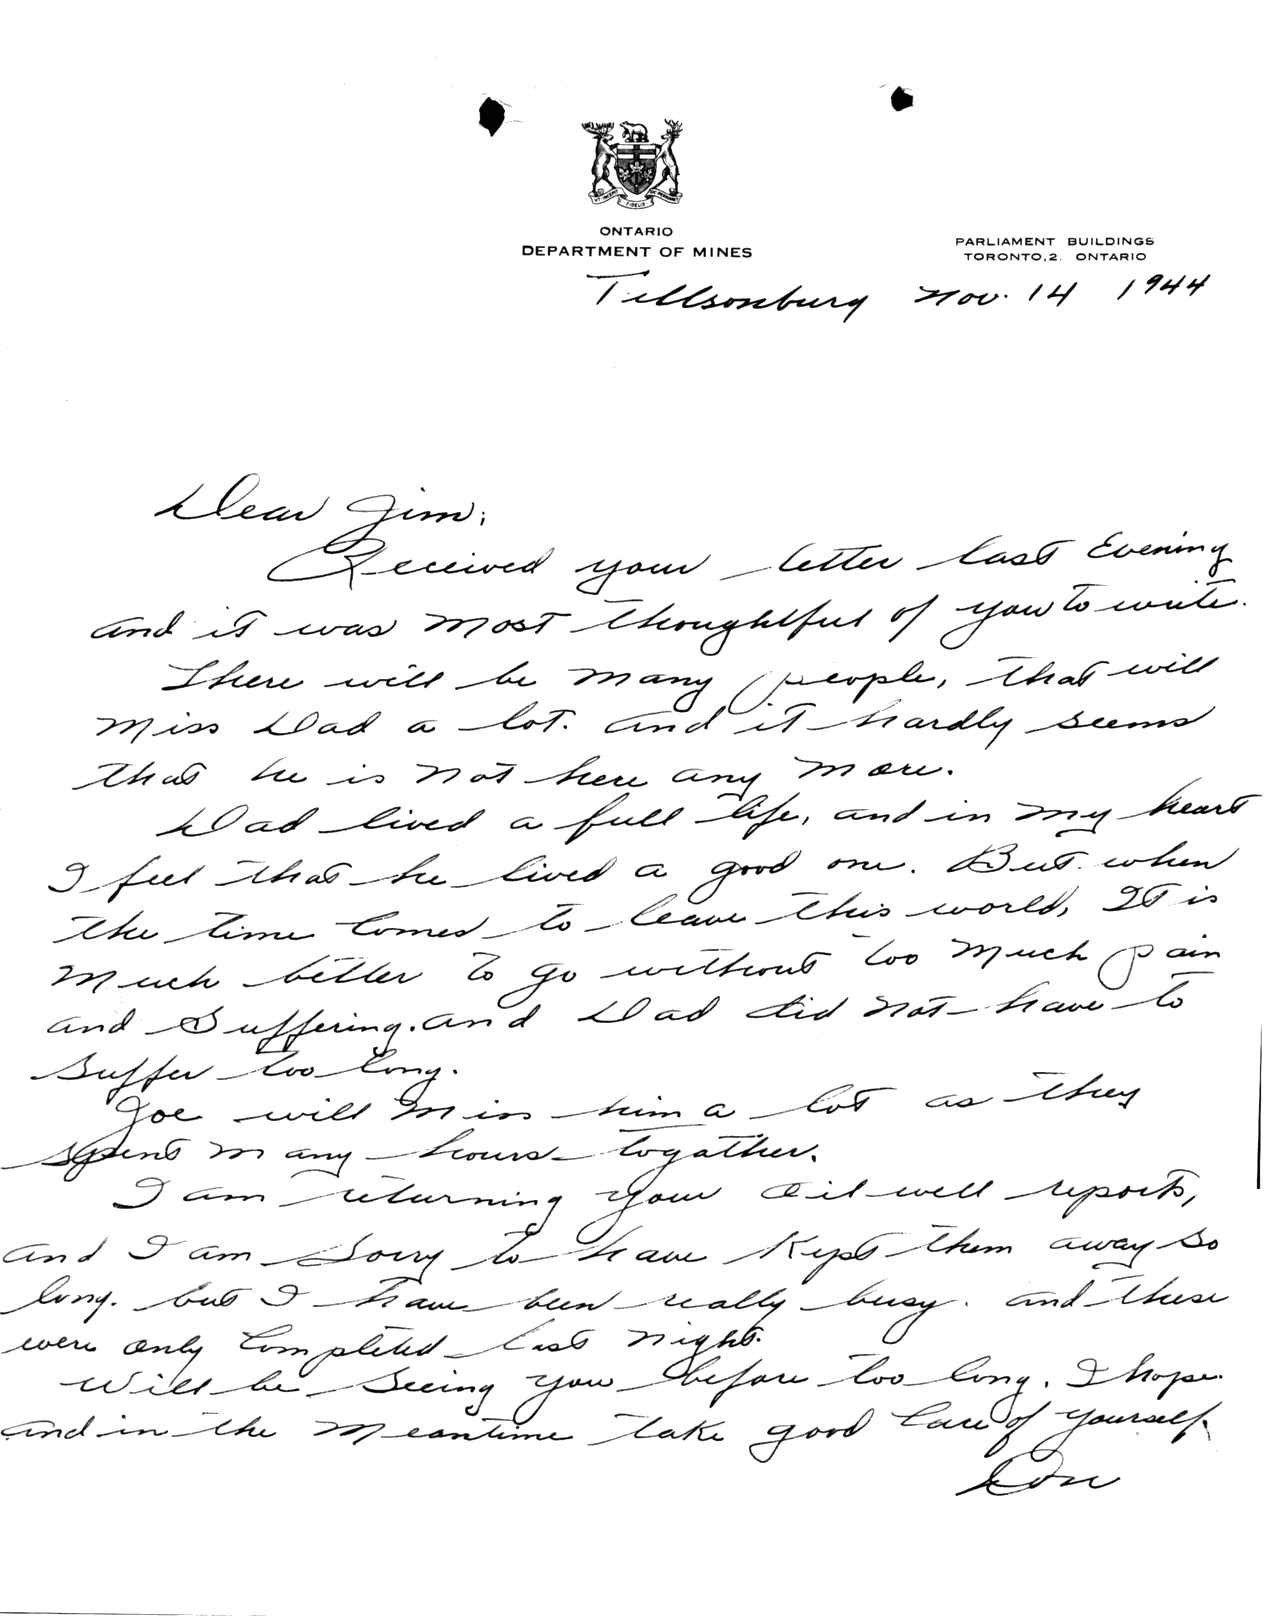 ONTARIO
DEPARTMENT OF MINES
PARLIAMENT BUILDINGS
TORONTO, 2. ONTARIO
Tillsonburg Nov. 14 1944
Dear Jim;
Received your letter last Evening
and it was most thoughtful of you to write.
There will be many people, that will
miss Dad a lot. and it hardly seems
that he is not here any more.
Dad lived a full life, and in my heart
I feel that he lived a good one. But when
the time comes to leave this world, It is
much better to go without too much pain
and Suffering. and Dad did not have to
suffer too long.
Joe will miss him a lot as they
spent many hours together.
I am returning your oil well reports,
and I am Sorry to have Kept them away so
long. but I have been really busy. and these
were only Completed last night.
Will be Seeing you before too long, I hope.
and in the Meantime take good Care of yourself.
Don